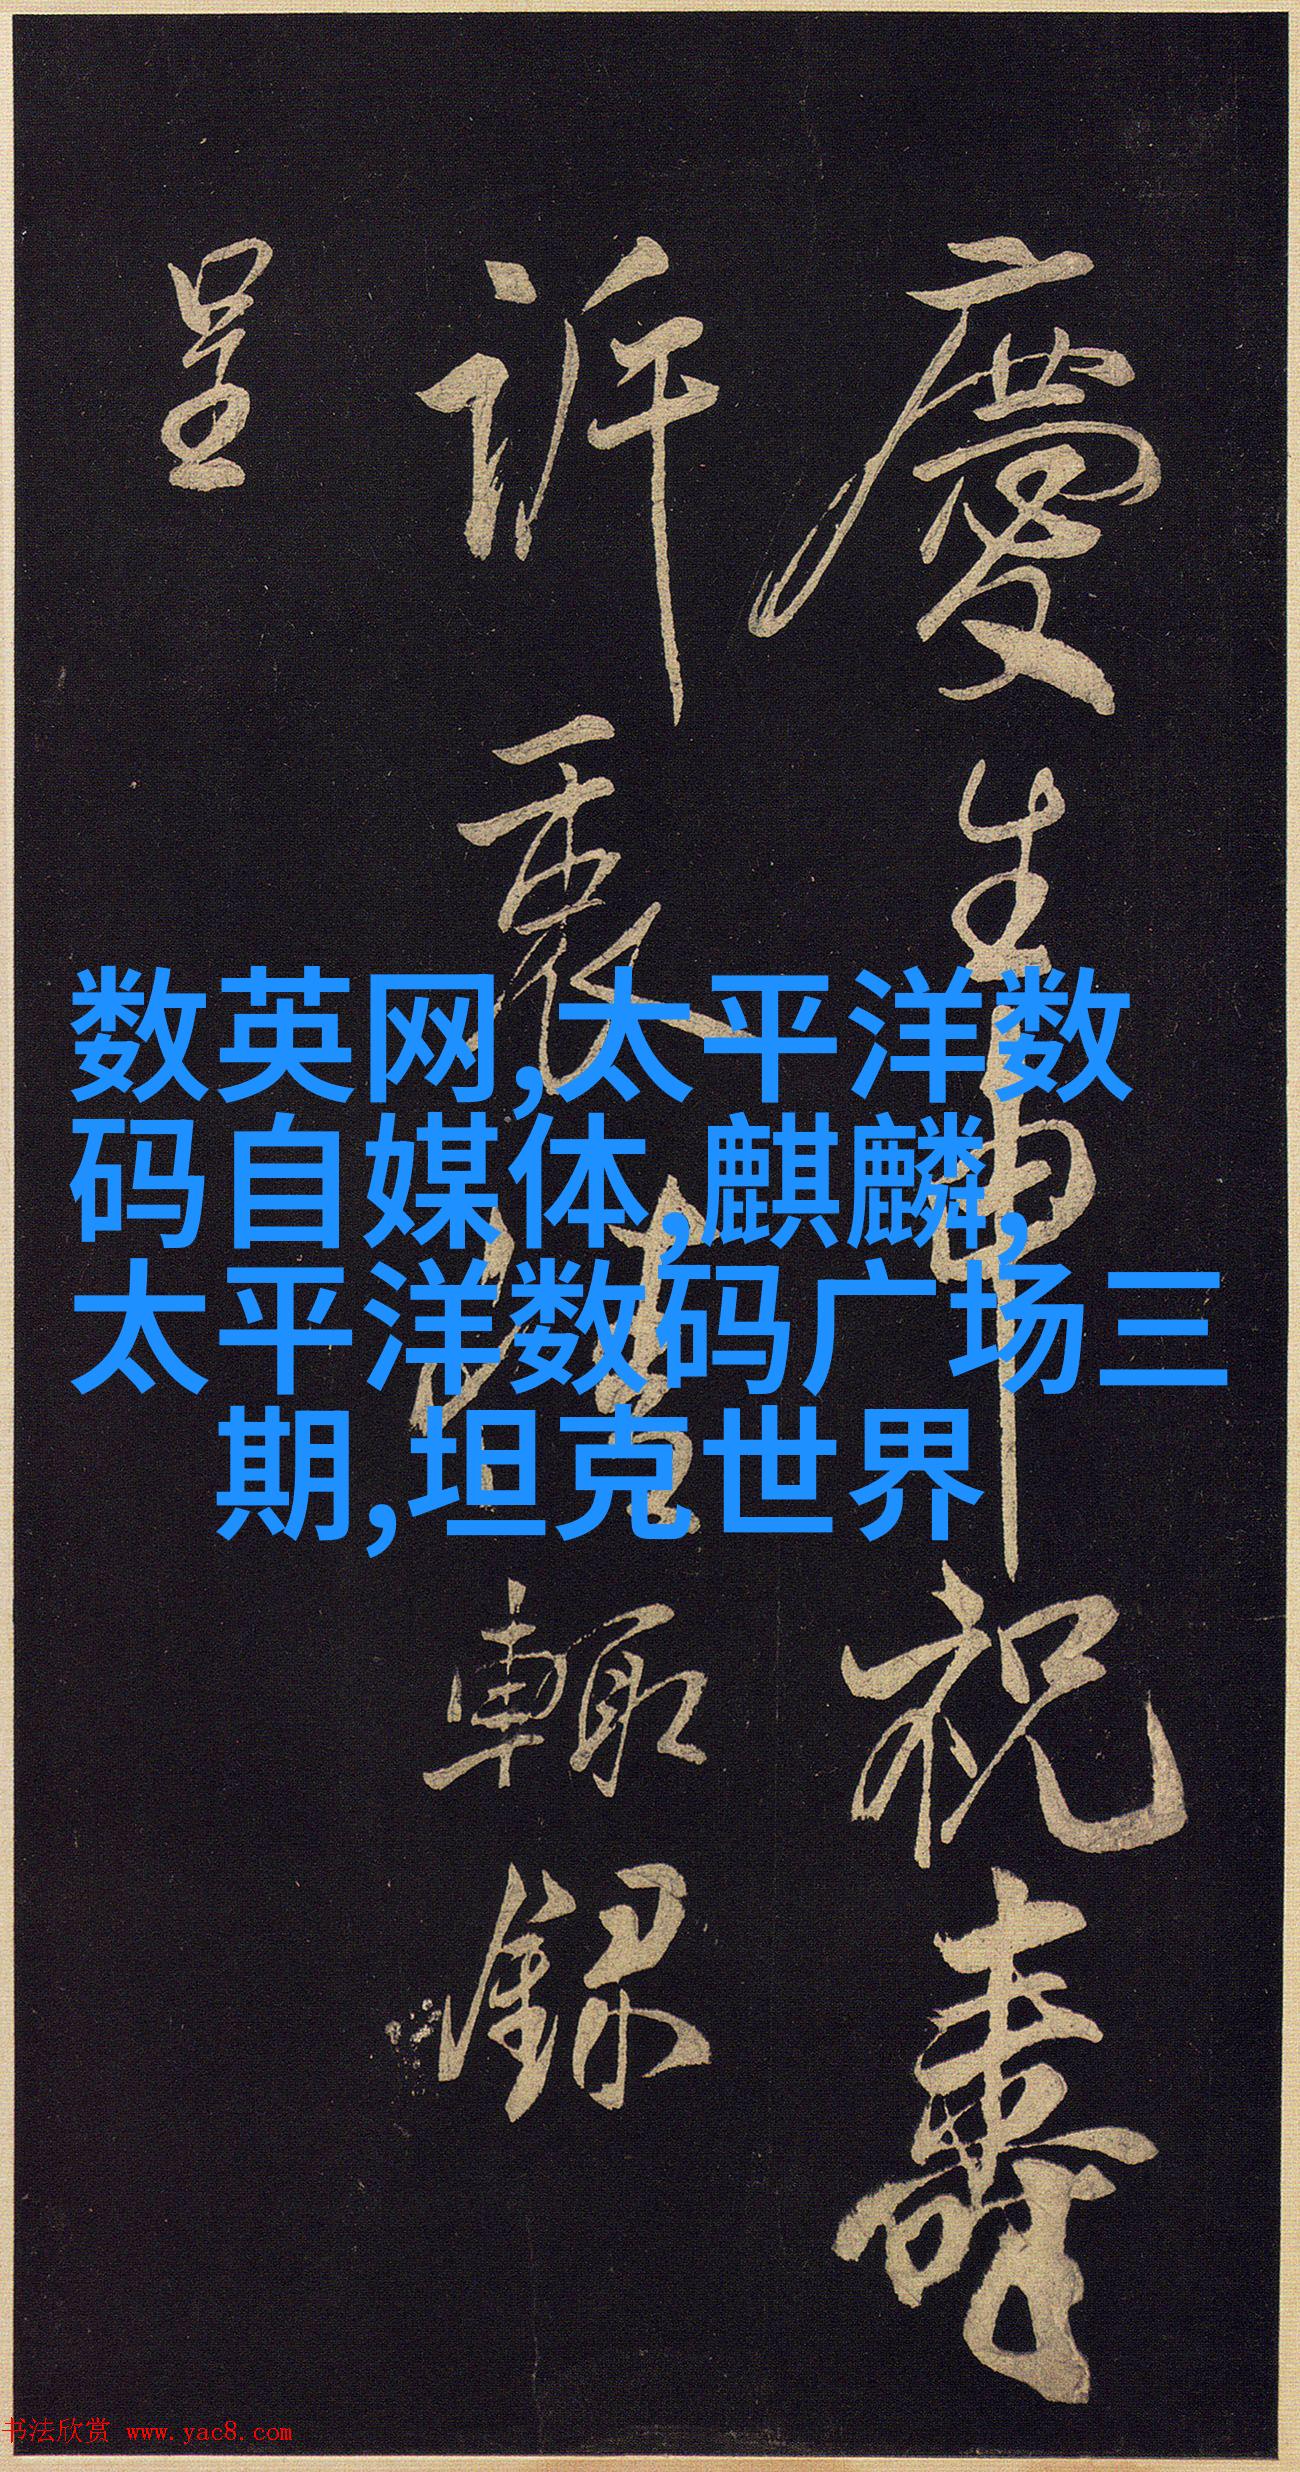 慶生申祝壽
訢衷謹輒錄
呈
数英网,太平洋数
码自媒体,麒麟,
太平洋数码广场三
期,坦克世界
书法欣赏 www.yac8.com